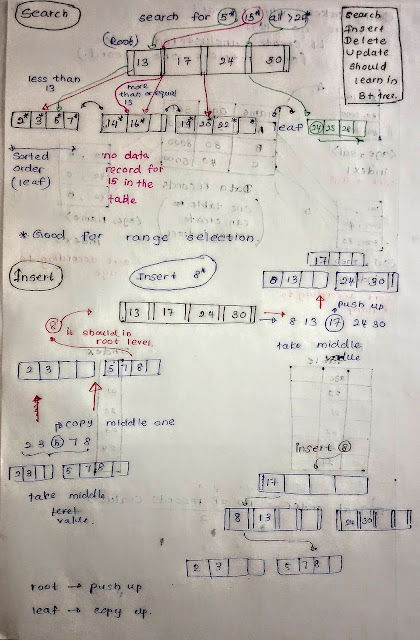 Search
search for 5* 15* all >24*
(Root)
13 17 24 30
Search
Insert
Delete
Update
Should
Learn in
B+ tree.
less than
13
more
than or equal
15
2* 3* 5* 7*
14* 16*
19* 20 22*
leaf
24 25 26
Sorted
order
(leaf)
no data
record for
15 in the
table
* Good for range selection
Insert
Insert 8*
17
8 13
24 30
push up
8
it should in
root level.
13 17 24 30
8 13 17 24 30
take middle
value
2 3
5 7 8
copy middle one
2 3 5 7 8
2 3
5 7 8
take middle
value.
Insert 8
17
8 13
24 30
2 3
5 7 8
root → push up
leaf → copy up.